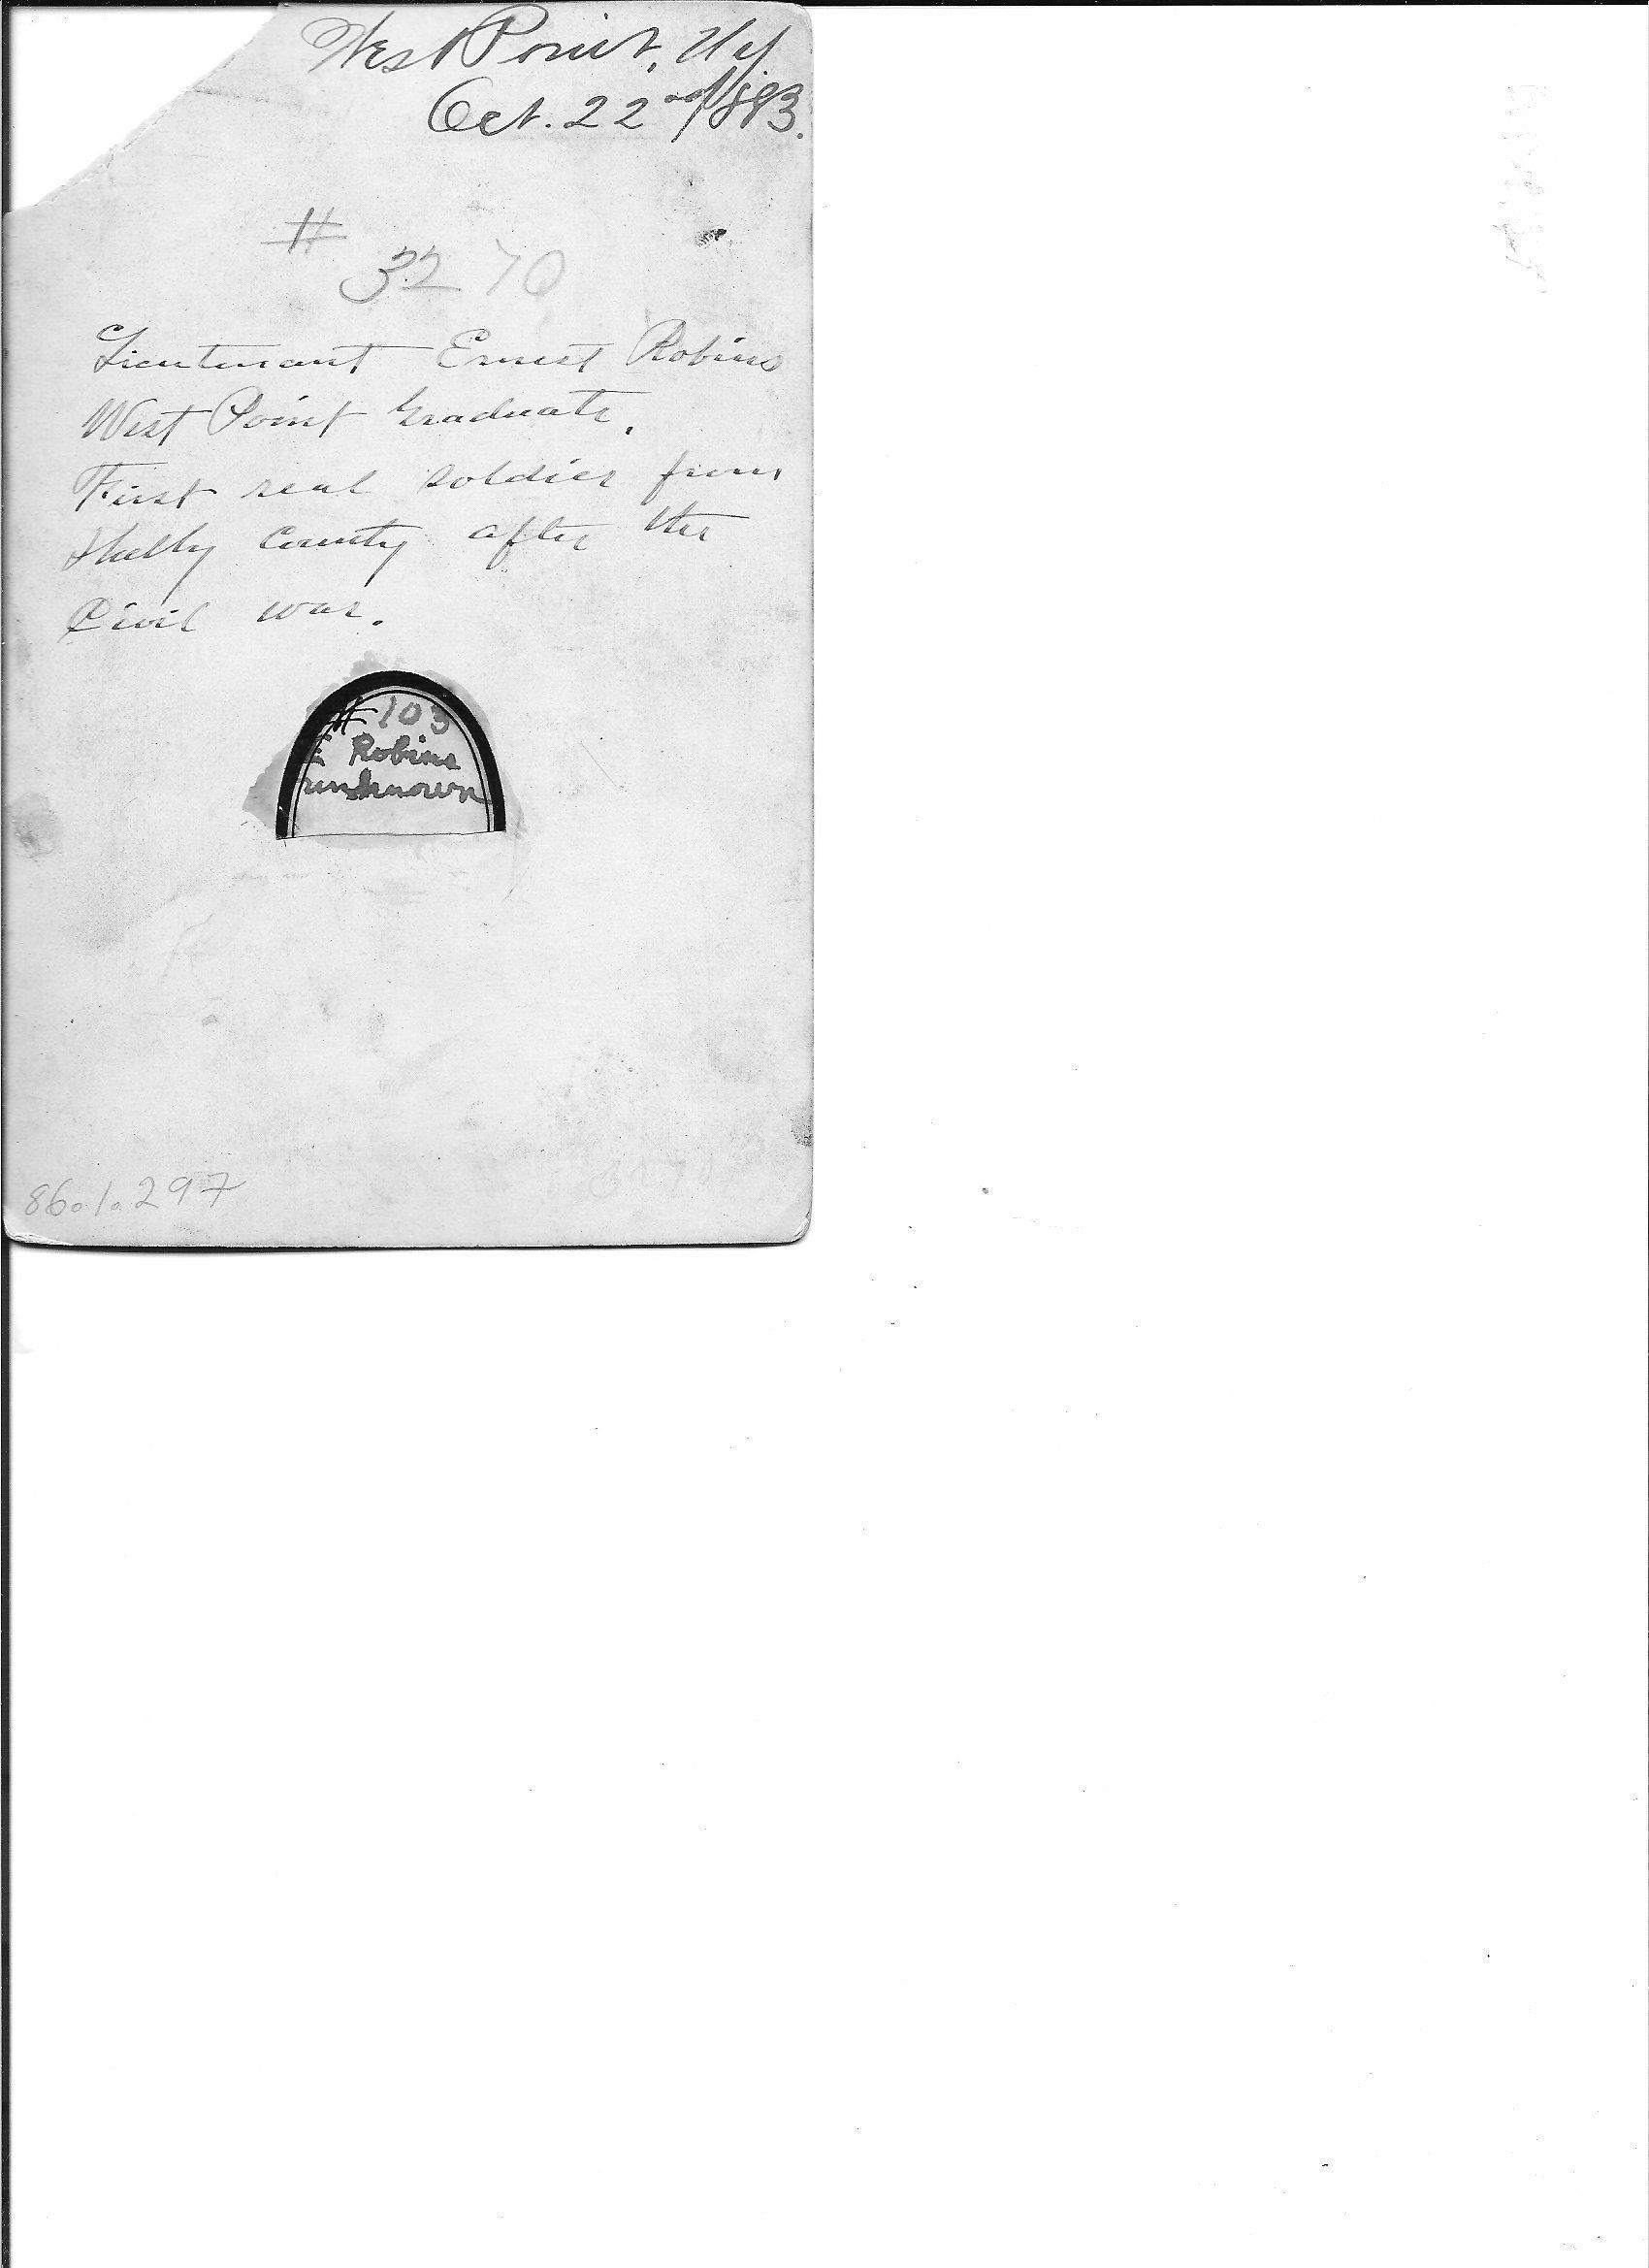 West Point, N.Y.
Oct. 22nd/883.
#
3270
Lieutenant Ernest Robins
West Point Graduate.
First real soldier from
Shelby County after the
Civil war.
# 103
E Robins
unknown
86.1.297
3270